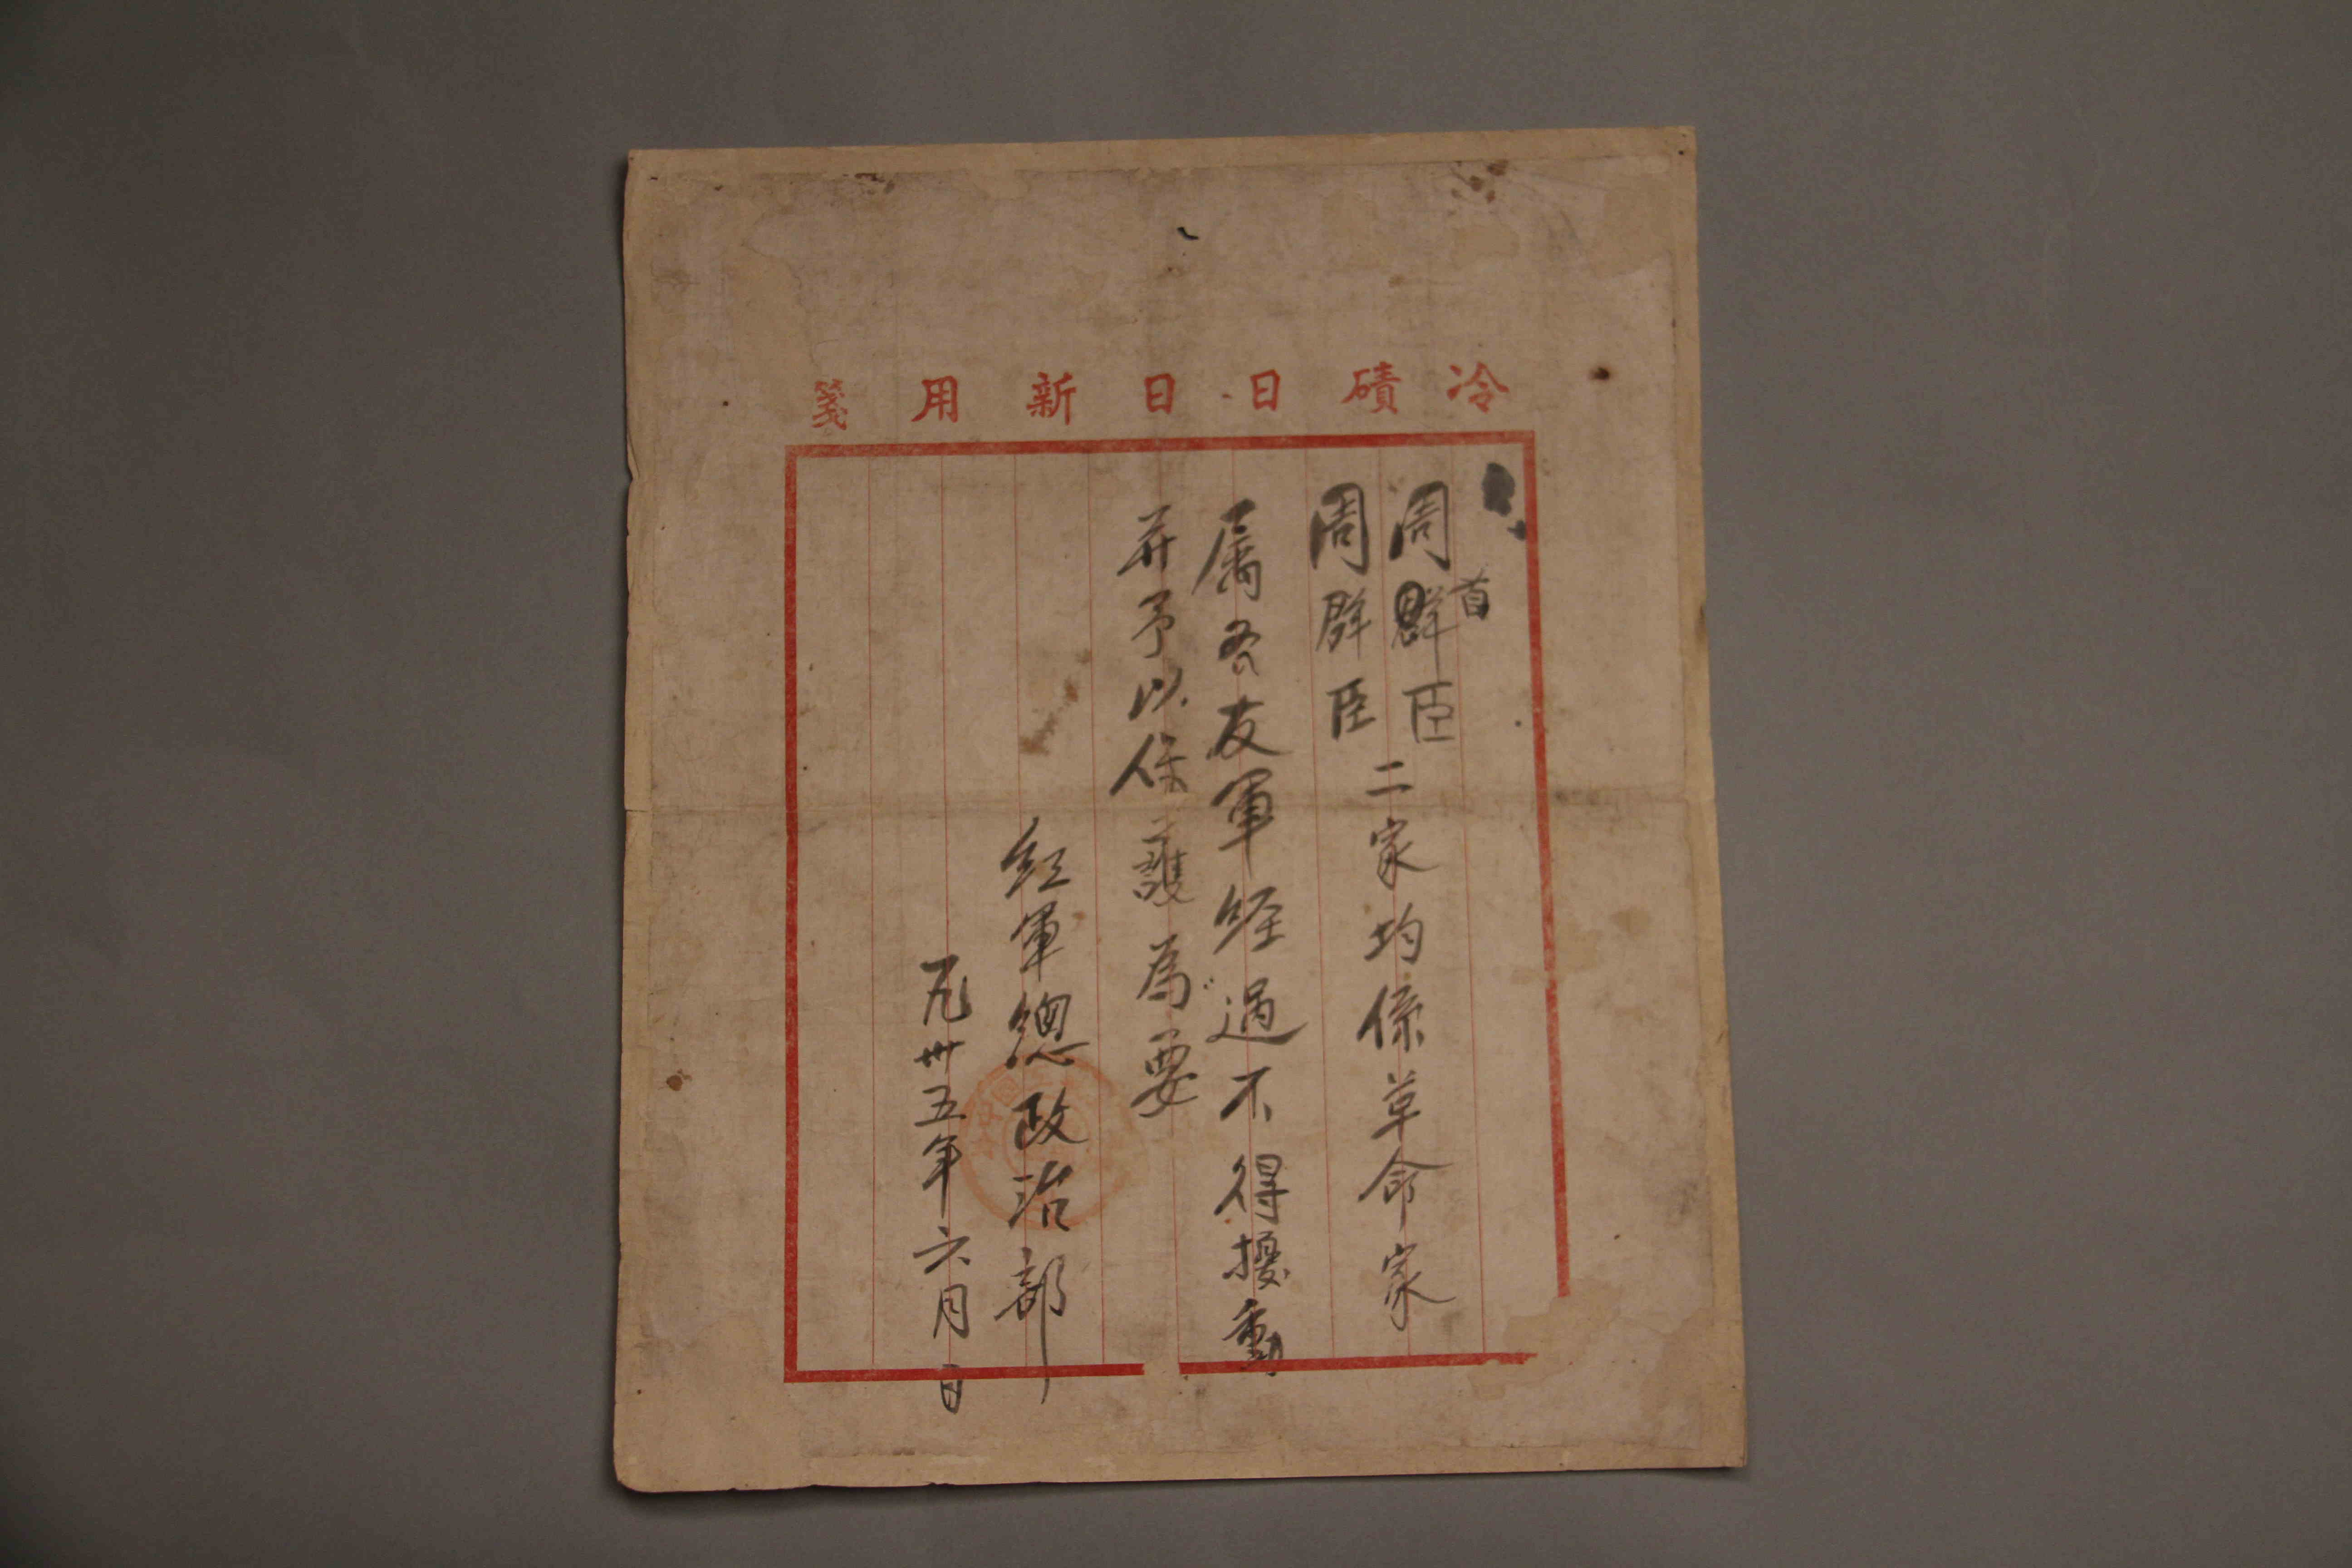 冷磧日日新用箋
首
周群臣
周群臣二家均係革命家
属各友軍経過不得擾動
并予以保護為要
紅軍總政治部
一九卅五年六月日